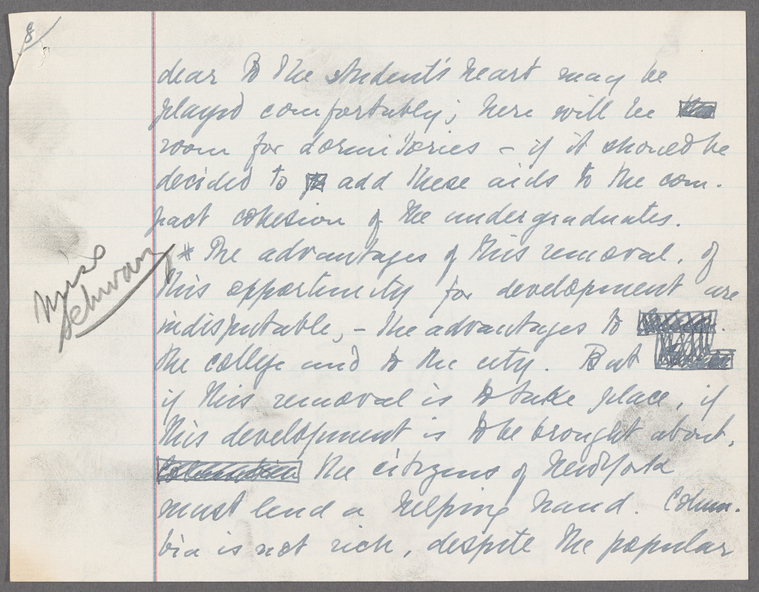 8
dear to the student's heart may be
played comfortably; here will be
room for dormitories – if it should be
decided to add these aids to the com-
pact cohesion of the undergraduates.
* The advantages of this removal, of
this opportunity for development are
indisputable, – the advantages to
the college and to the city. But
if this removal is to take place, if
this development is to be brought about,
Columbia the citizens of New York
must lend a helping hand. Colum-
bia is not rich, despite the popular
Miss
Schwarz